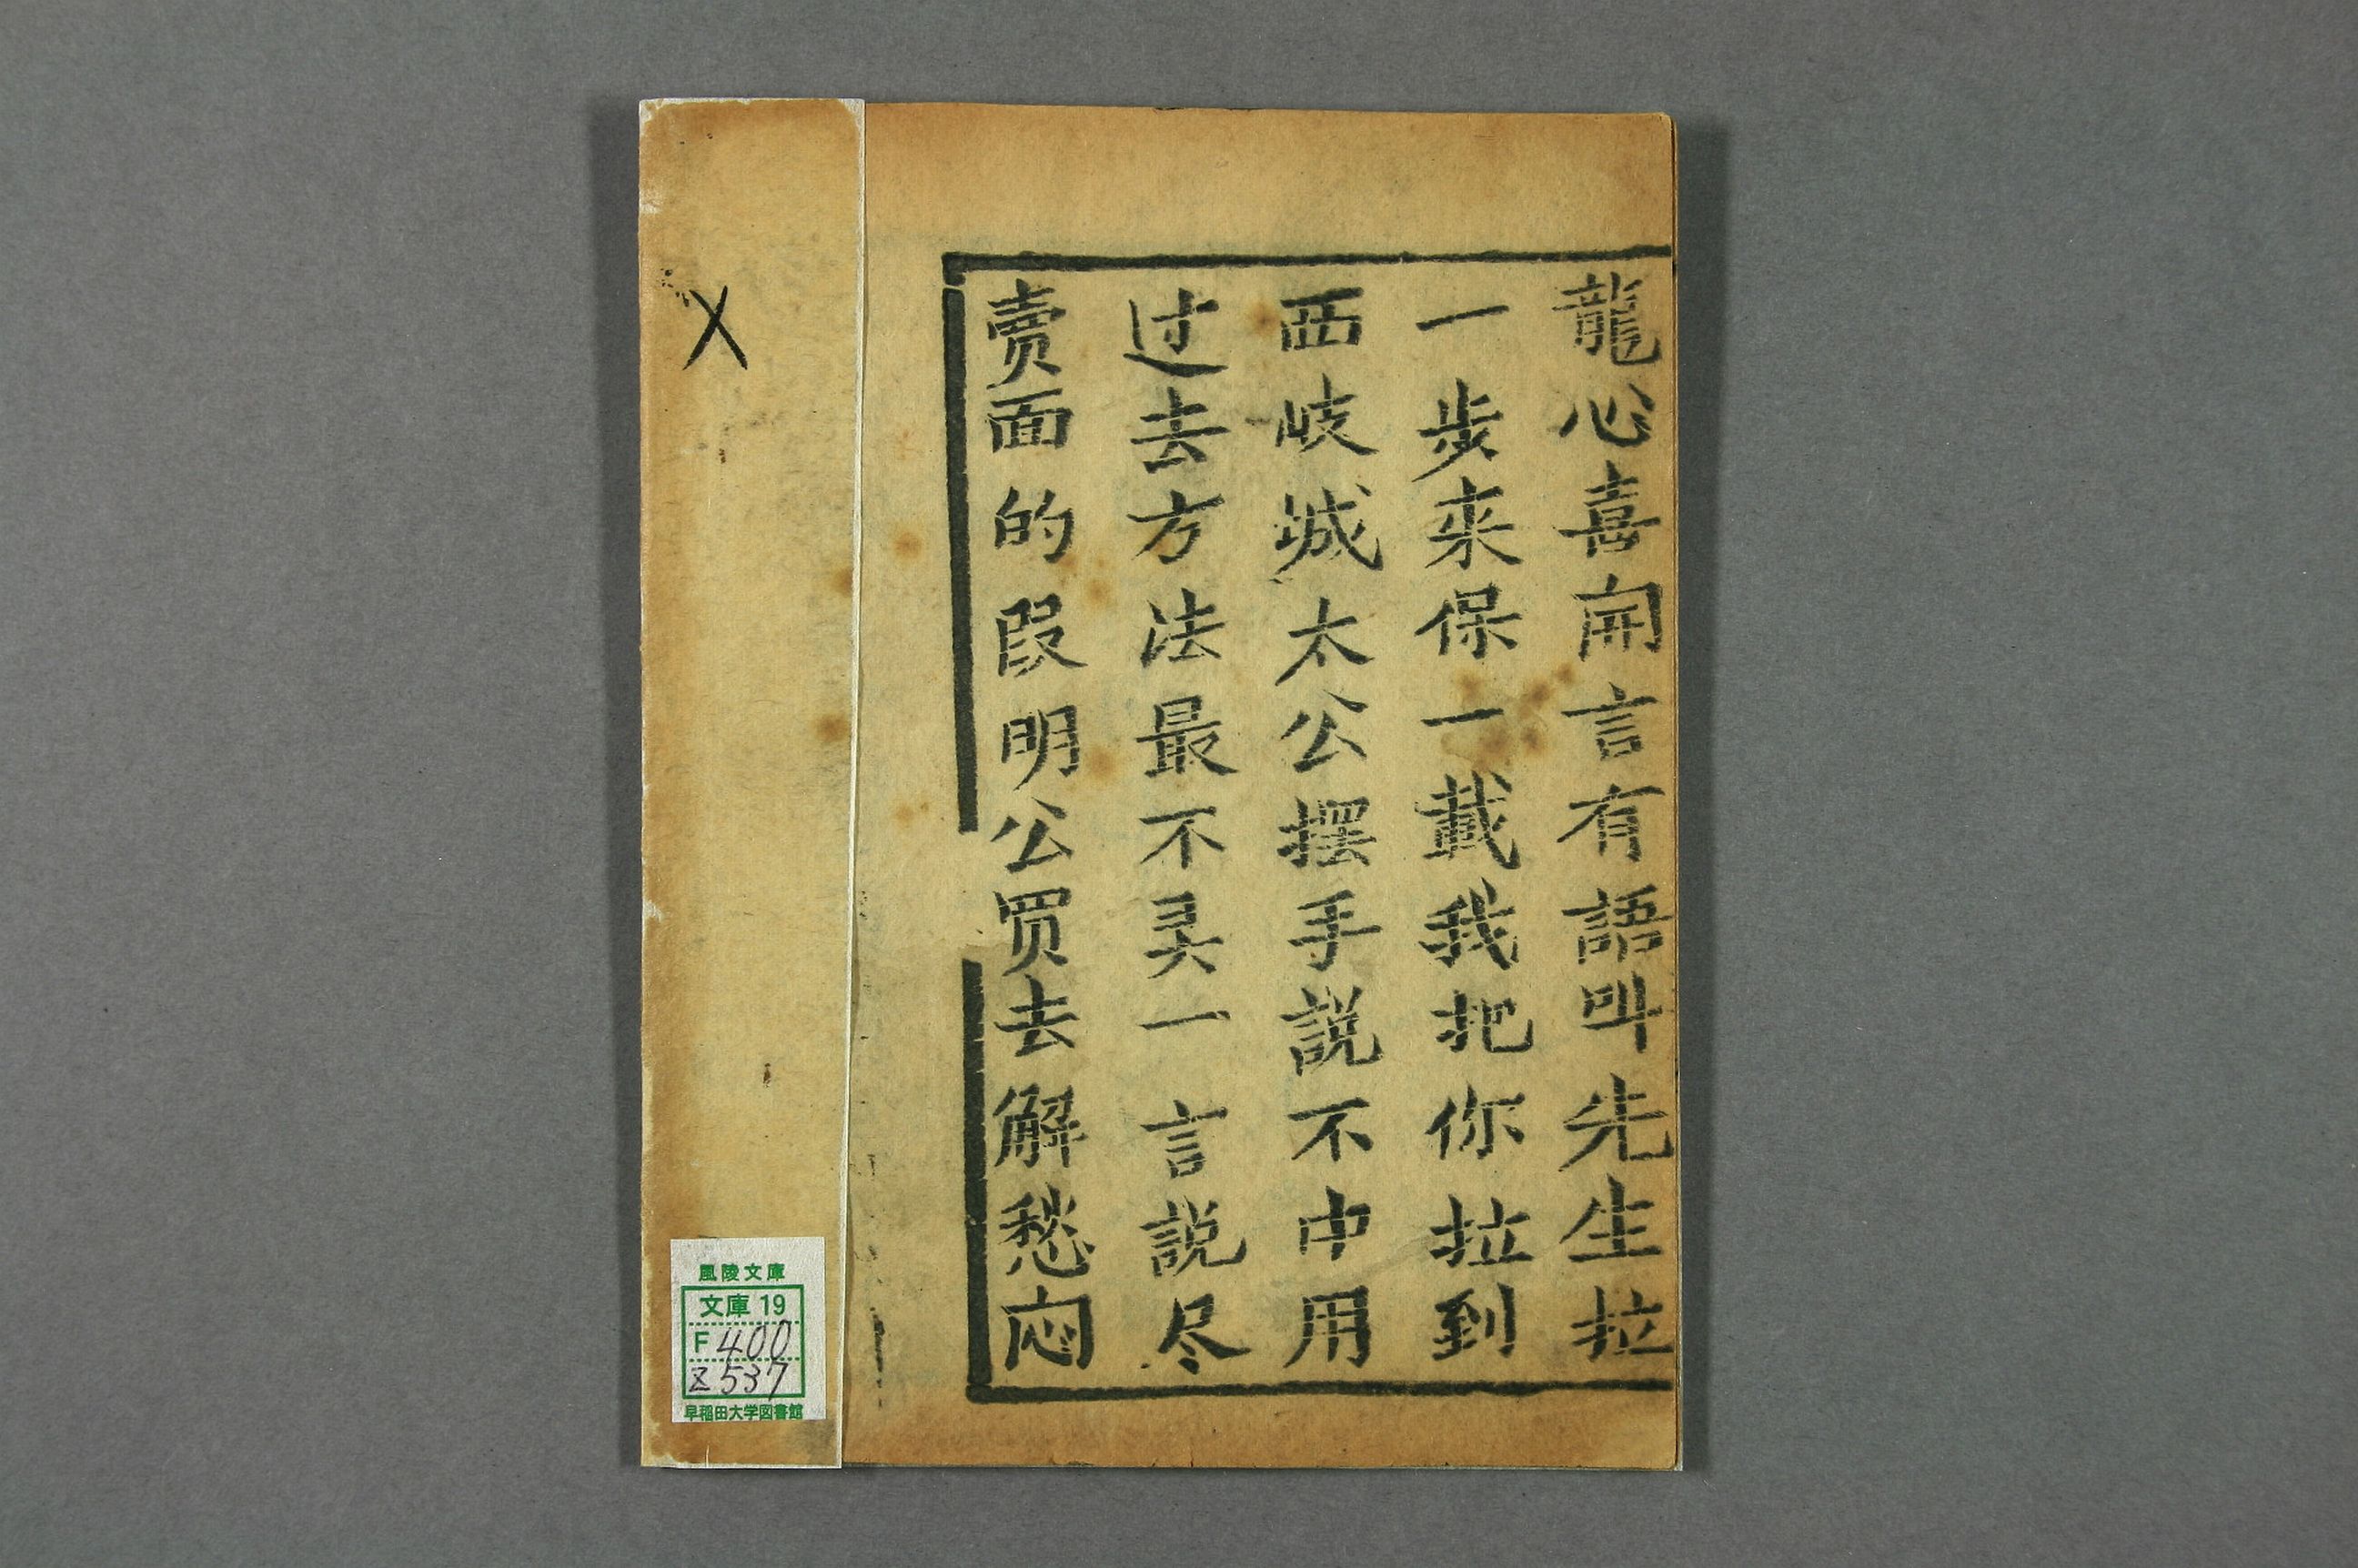 龍心喜開言有語叫先生拉
一步來保一載我把你拉到
西岐城太公摆手説不中用
过去方法最不灵一言説尽
賣面的叚明公買去解愁悶
X
風陵文庫
文庫 19
F 400
Z 537
早稲田大学図書館